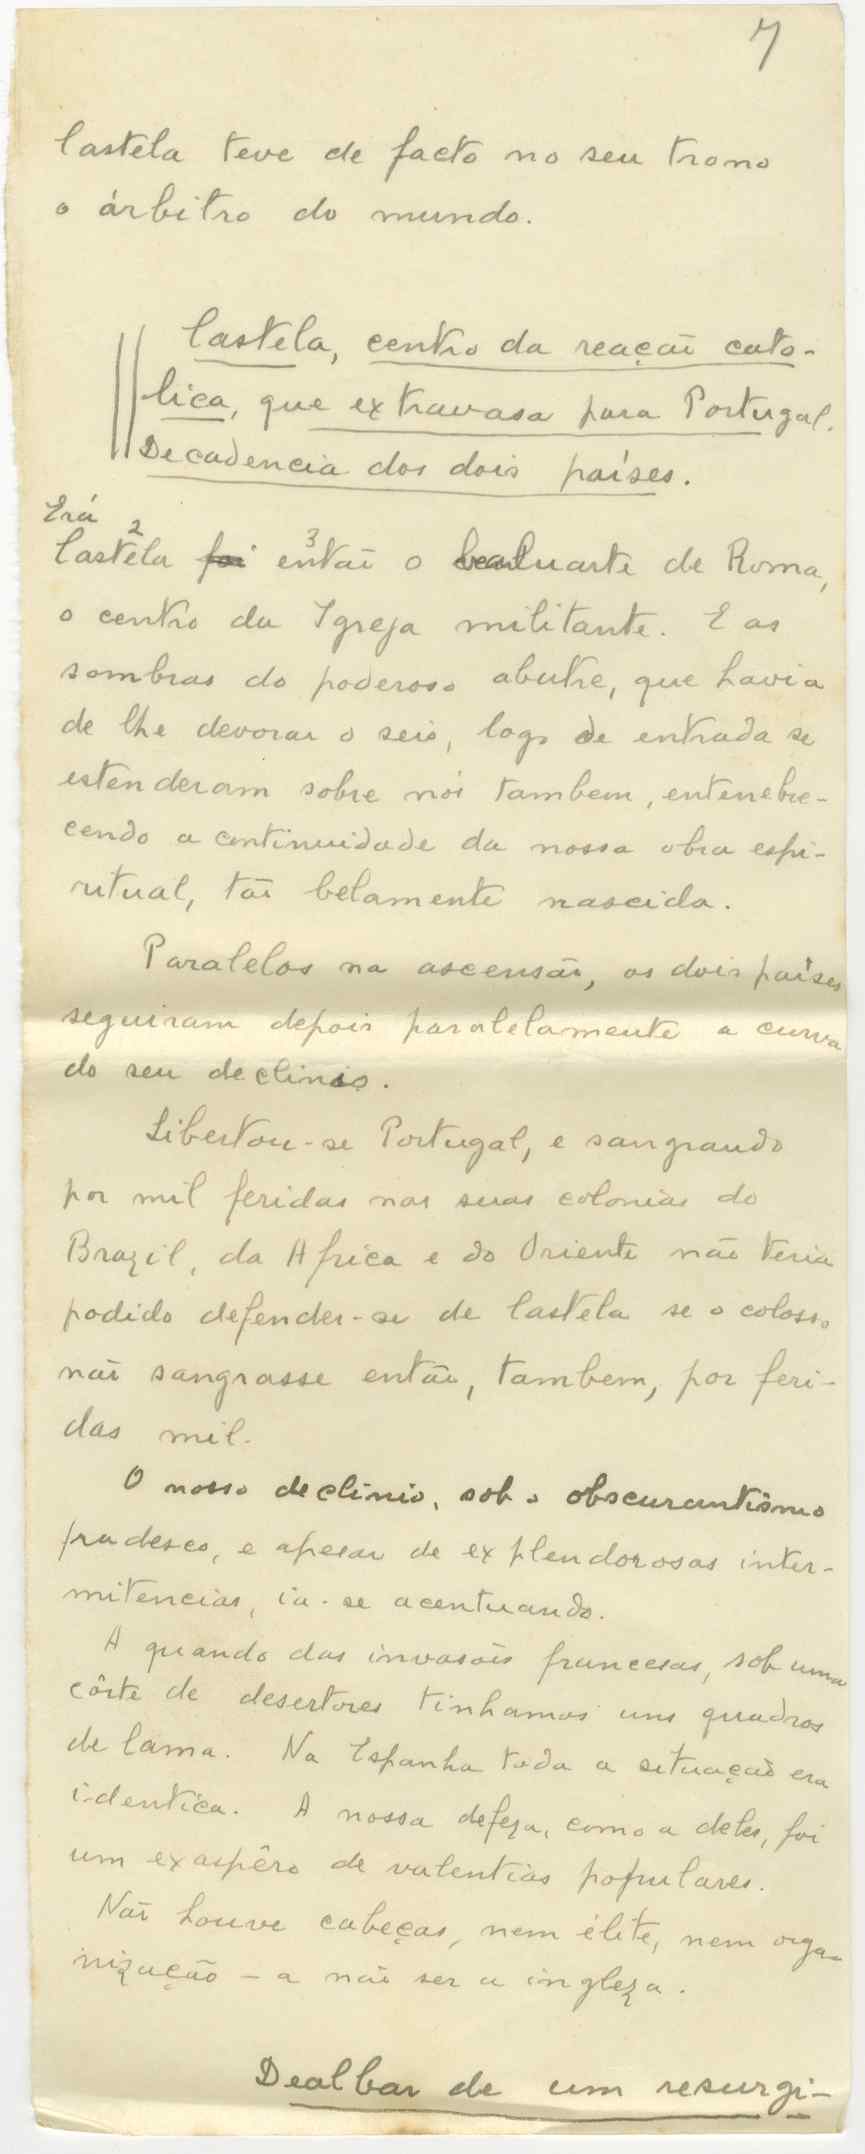 7
Castela teve de facto no seu trono
o árbitro do mundo.
Castela, centro da reação cato-
lica, que extravasa para Portugal.
Decadencia dos dois países.
Erá 2 3
Castela foi entaõ o baluarte de Roma,
o centro da Igreja militante. E as
sombras do poderoso abutre, que havia
de lhe devorar o seio, logo de entrada se
estenderam sobre nós tambem, entenebre-
cendo a continuidade da nossa obra espi-
ritual, tão belamente nascida.
Paralelos na ascensão, os dois países
seguiram depois paralelamente a curva
do seu declinio.
Libertou-se Portugal, e sangrando
por mil feridas nas suas colonias do
Brazil, da Africa e do Oriente não teria
podido defender-se de Castela se o colosso
não sangrasse então, tambem, por feri-
das mil.
O nosso declinio, sob o obscurantismo
fradesco, e apesar de explendorosas inter-
mitencias, ia-se acentuando.
A quando das invasões francesas, sob uma
côrte de desertores tinhamos uns quadros
de lama. Na Espanha toda a situação era
identica. A nossa defeza, como a deles, foi
um exaspêro de valentias populares.
Não houve cabeças, nem élite, nem orga-
nização - a não ser a ingleza.
Dealbar de um resurgi-